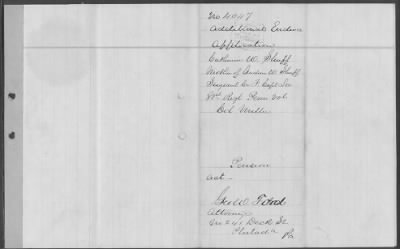 No 4047
Additional Evidence
Application
Catherine W. Shuff
Mother of Andrew W. Shuff
Sergeant Co F. Capt
Regt Penn Vol
Pension
Act
Geo W. Ford
Attorney
No 241 Dock St
Philada Pa